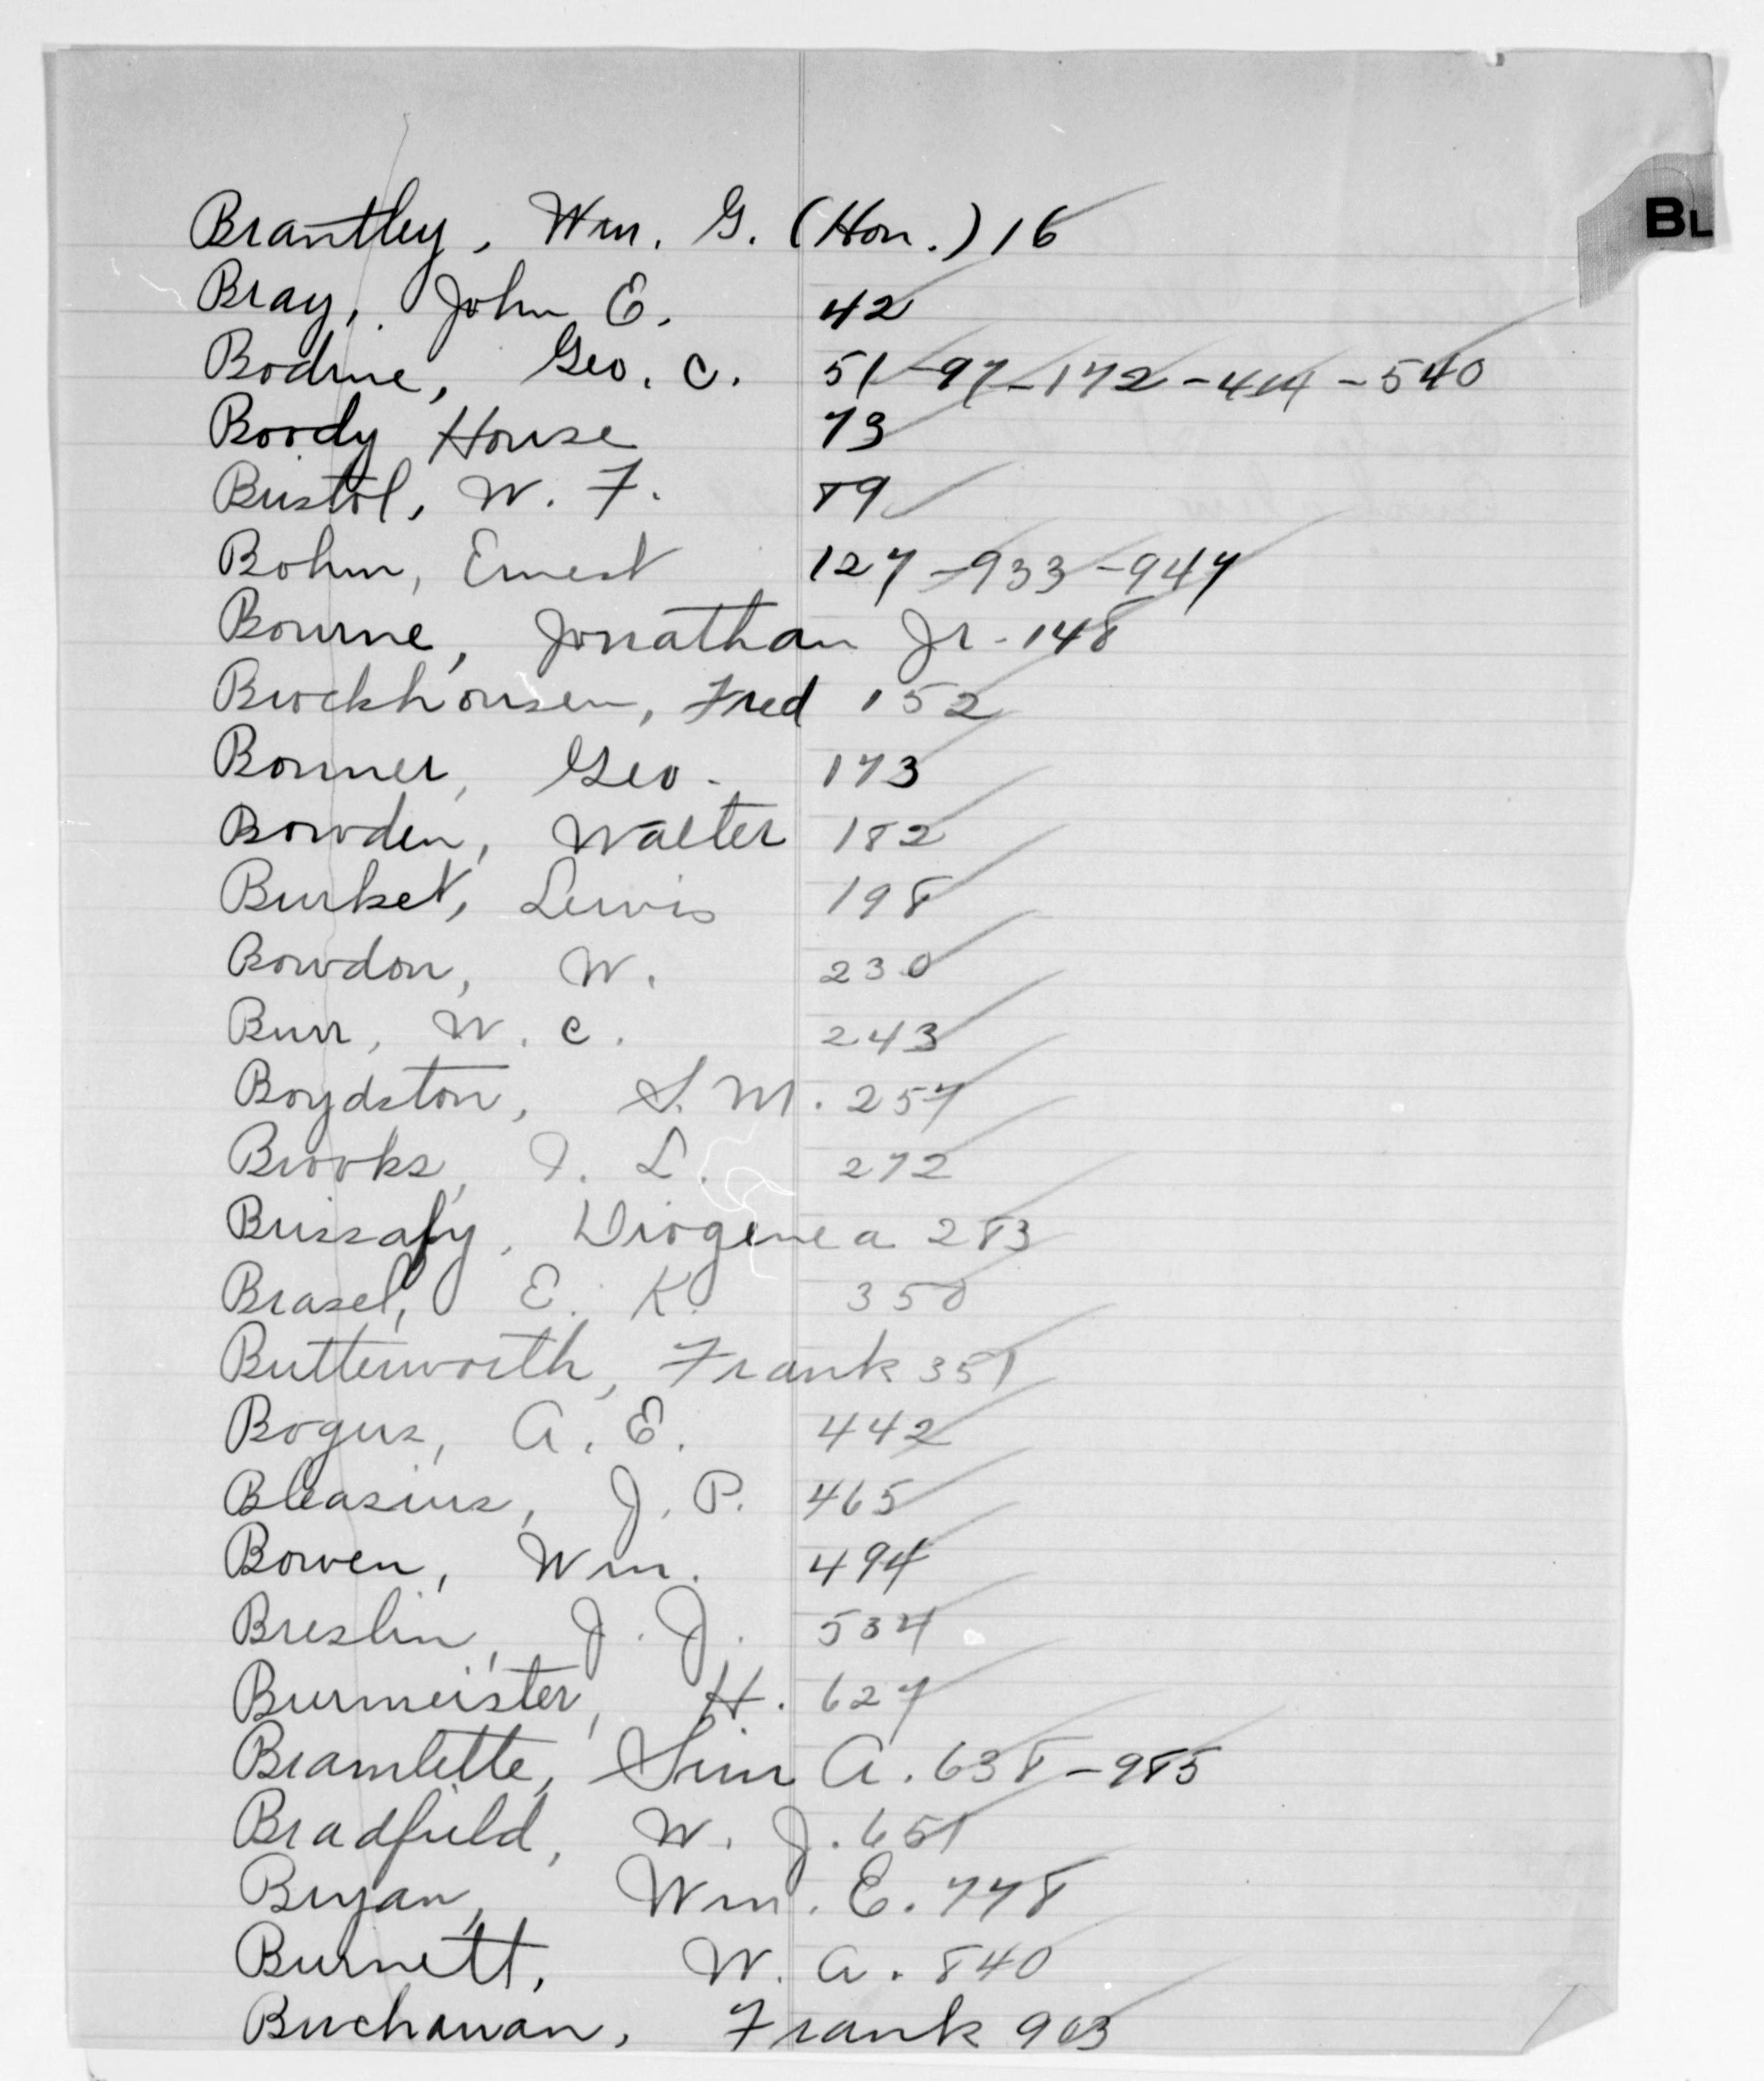 BL
Brantley, Wm. G. (Hon.) 16
Bray, John E. 42
Bodine, Geo. C. 51-97-172-414-540
Boody House 73
Bristol, W. F. 89
Bohm, Ernest 127-933-947
Bourne, Jonathan Jr. - 148
Brockhousen, Fred 152
Bonner, Geo. 173
Bowden, Walter 182
Burket, Lewis 198
Bowdon, W. 230
Burr, W. C. 243
Boydston, S. M. 257
Brooks, I. L. 272
Brissafy, Diogene a 283
Brasel, E. K. 350
Butterworth, Frank 351
Bogus, A. E. 442
Bleasius, J. P. 465
Bowen, Wm. 494
Breslin, J. J. 534
Burmeister, H. 627
Bramlette, Sim A. 638-985
Bradfield, W. J. 651
Bryan, Wm. E. 778
Burnett, W. A. 840
Buchanan, Frank 903